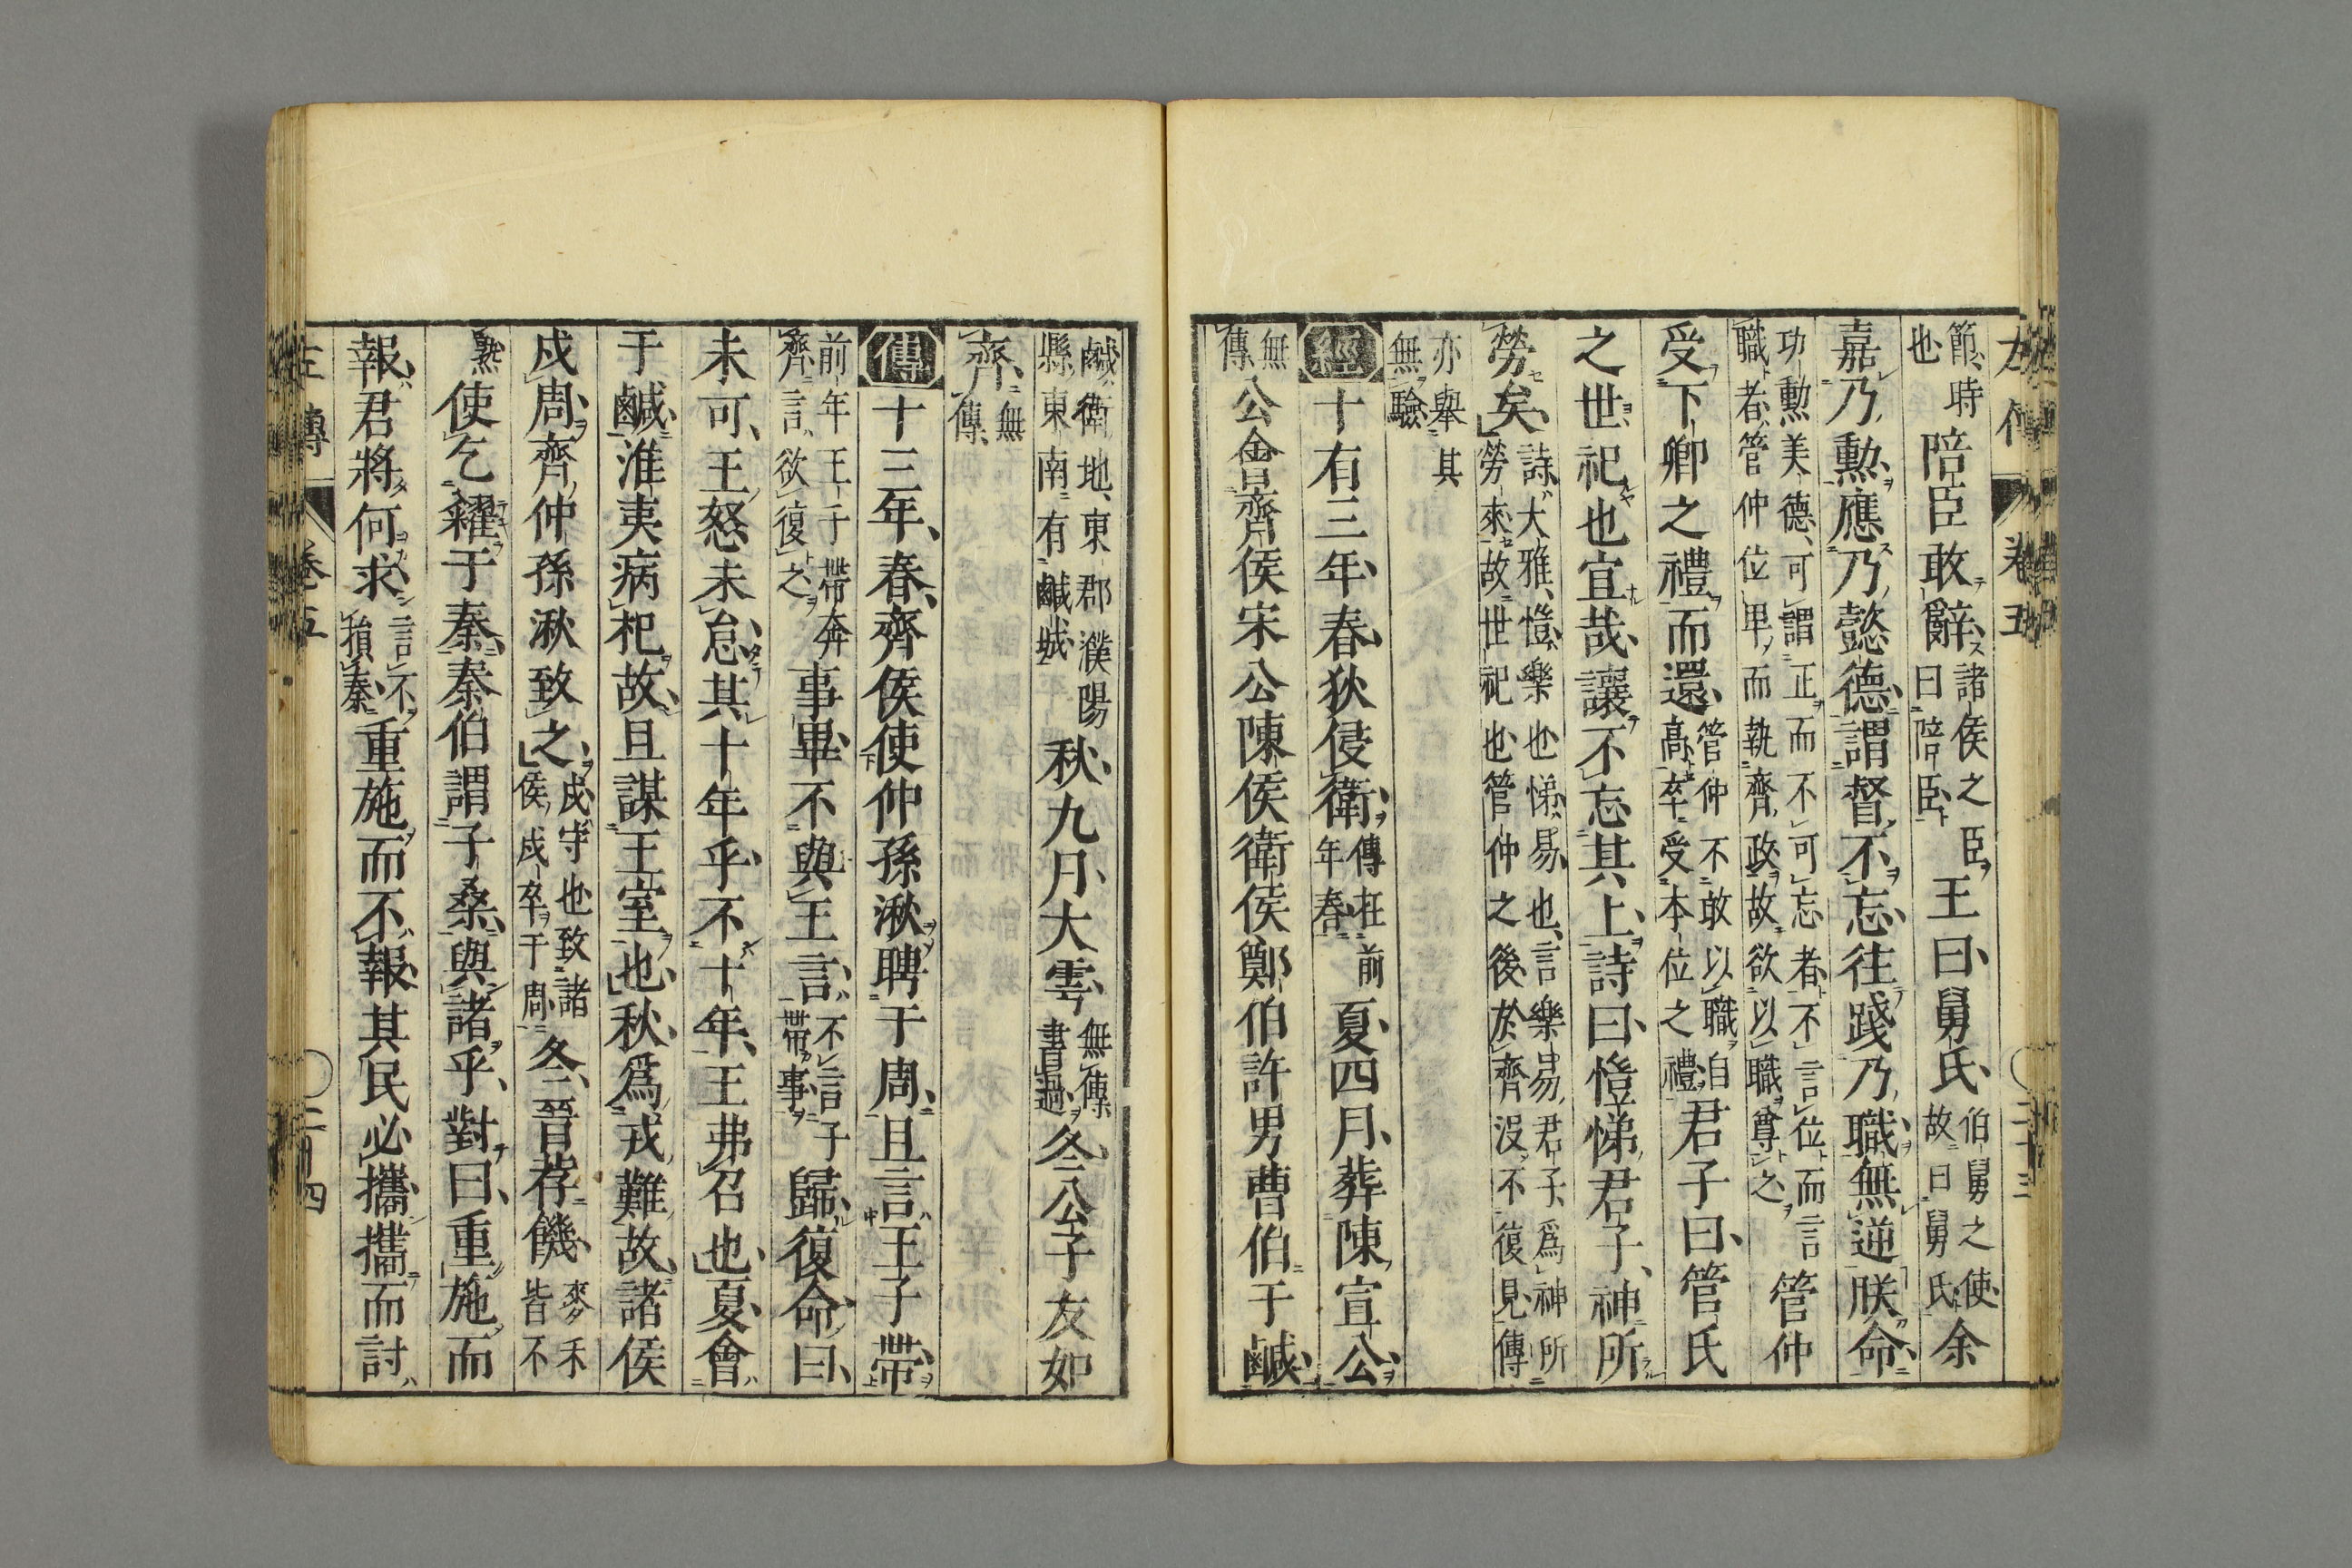 左傳 卷五 二十三
節時也陪臣敢辭諸侯之臣曰陪臣王曰舅氏伯舅之使故曰舅氏余
嘉乃勲應乃懿德謂督不忘往踐乃職無逆朕命
功勲美德可謂正而不可忘者不言位而言職者管仲位卑而執齊政故欲以職尊之管仲
受下卿之禮而還管仲不敢以職自高卒受本位之禮君子曰管氏
之世祀也宜哉讓不忘其上詩曰愷悌君子神所
勞矣詩大雅愷樂也悌易也言樂易君子爲神所勞來故世祀也管仲之後於齊沒不復見傳
亦舉其無驗
經十有三年春狄侵衛傳在前年春夏四月葬陳宣公
無傳公會齊侯宋公陳侯衛侯鄭伯許男曹伯于鹹
鹹衛地東郡濮陽縣東南有鹹城秋九月大雩無傳書過冬公子友如
齊無傳
傳十三年春齊侯使仲孫湫聘于周且言王子帶
前年王子帶奔齊言欲復之事畢不與王言不言子帶事歸復命曰
未可王怒未怠其十年乎不十年王弗召也夏會
于鹹淮夷病杞故且謀王室也秋爲戎難故諸侯
戍周齊仲孫湫致之戍守也致諸侯戍卒于周冬晉荐饑麥禾皆不
熟使乞糴于秦秦伯謂子桑與諸乎對曰重施而
報君將何求言不損秦重施而不報其民必攜攜而討
左傳 卷五 二十四